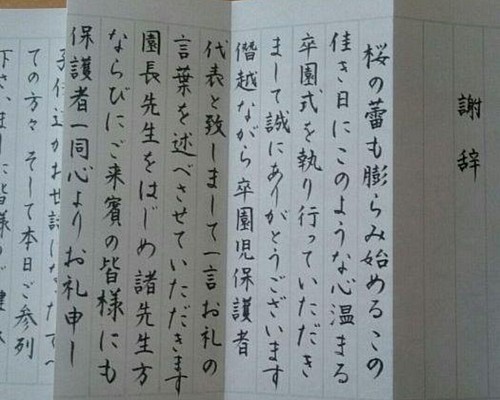 謝辞
桜の蕾も膨らみ始めるこの
佳き日にこのような心温まる
卒園式を執り行っていただき
まして誠にありがとうございます
僭越ながら卒園児保護者
代表と致しまして一言お礼の
言葉を述べさせていただきます
園長先生をはじめ諸先生方
ならびにご来賓の皆様にも
保護者一同心よりお礼申し
ての方々 そして本日ご参列
下さいました皆様